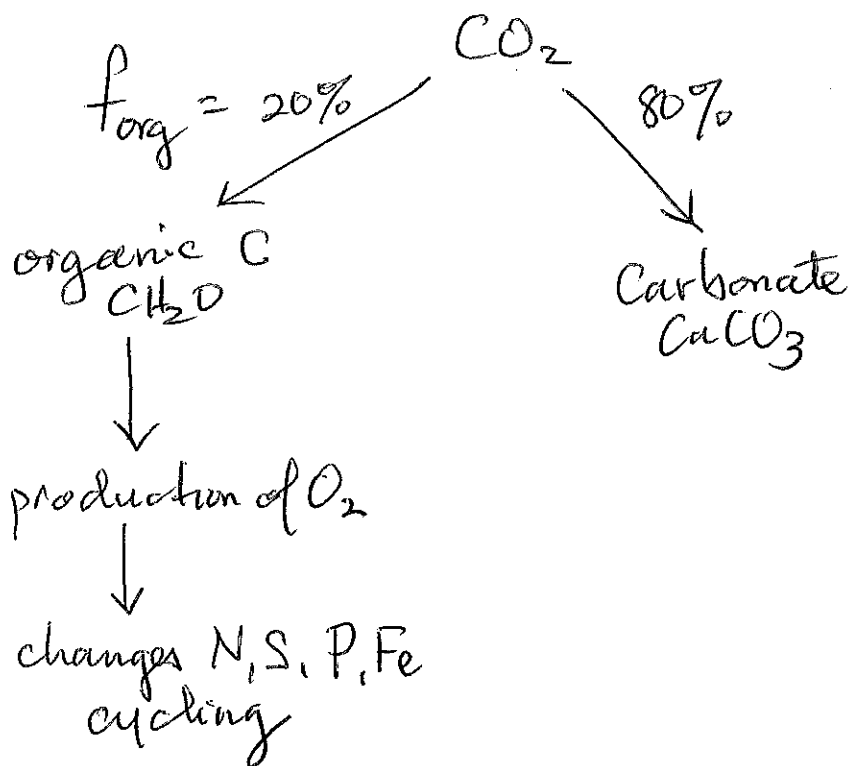 CO₂
f_org = 20%
80%
organic C
CH₂O
Carbonate
CaCO₃
production of O₂
changes N, S, P, Fe
cycling